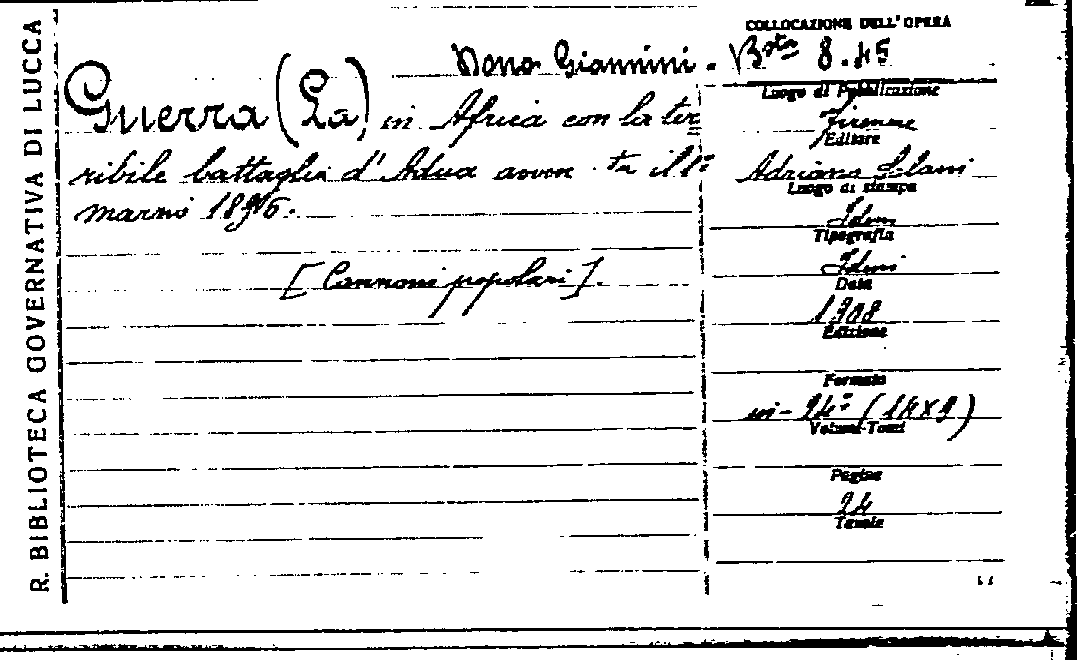 R. BIBLIOTECA GOVERNATIVA DI LUCCA
COLLOCAZIONE DELL'OPERA
Dono Giannini. Bsta 8.45
Guerra (La) in Africa con la ter
ribile battaglia d'Adua avven ta il 1°
marzo 1896.
[Canzoni popolari].
Luogo di Pubblicazione
Firenze
Editore
Adriano Salani
Luogo di stampa
Idem
Tipografia
Idem
Data
1908
Edizione
Formato
in-24° (14x9)
Volumi-Tomi
Pagine
24
Tavole